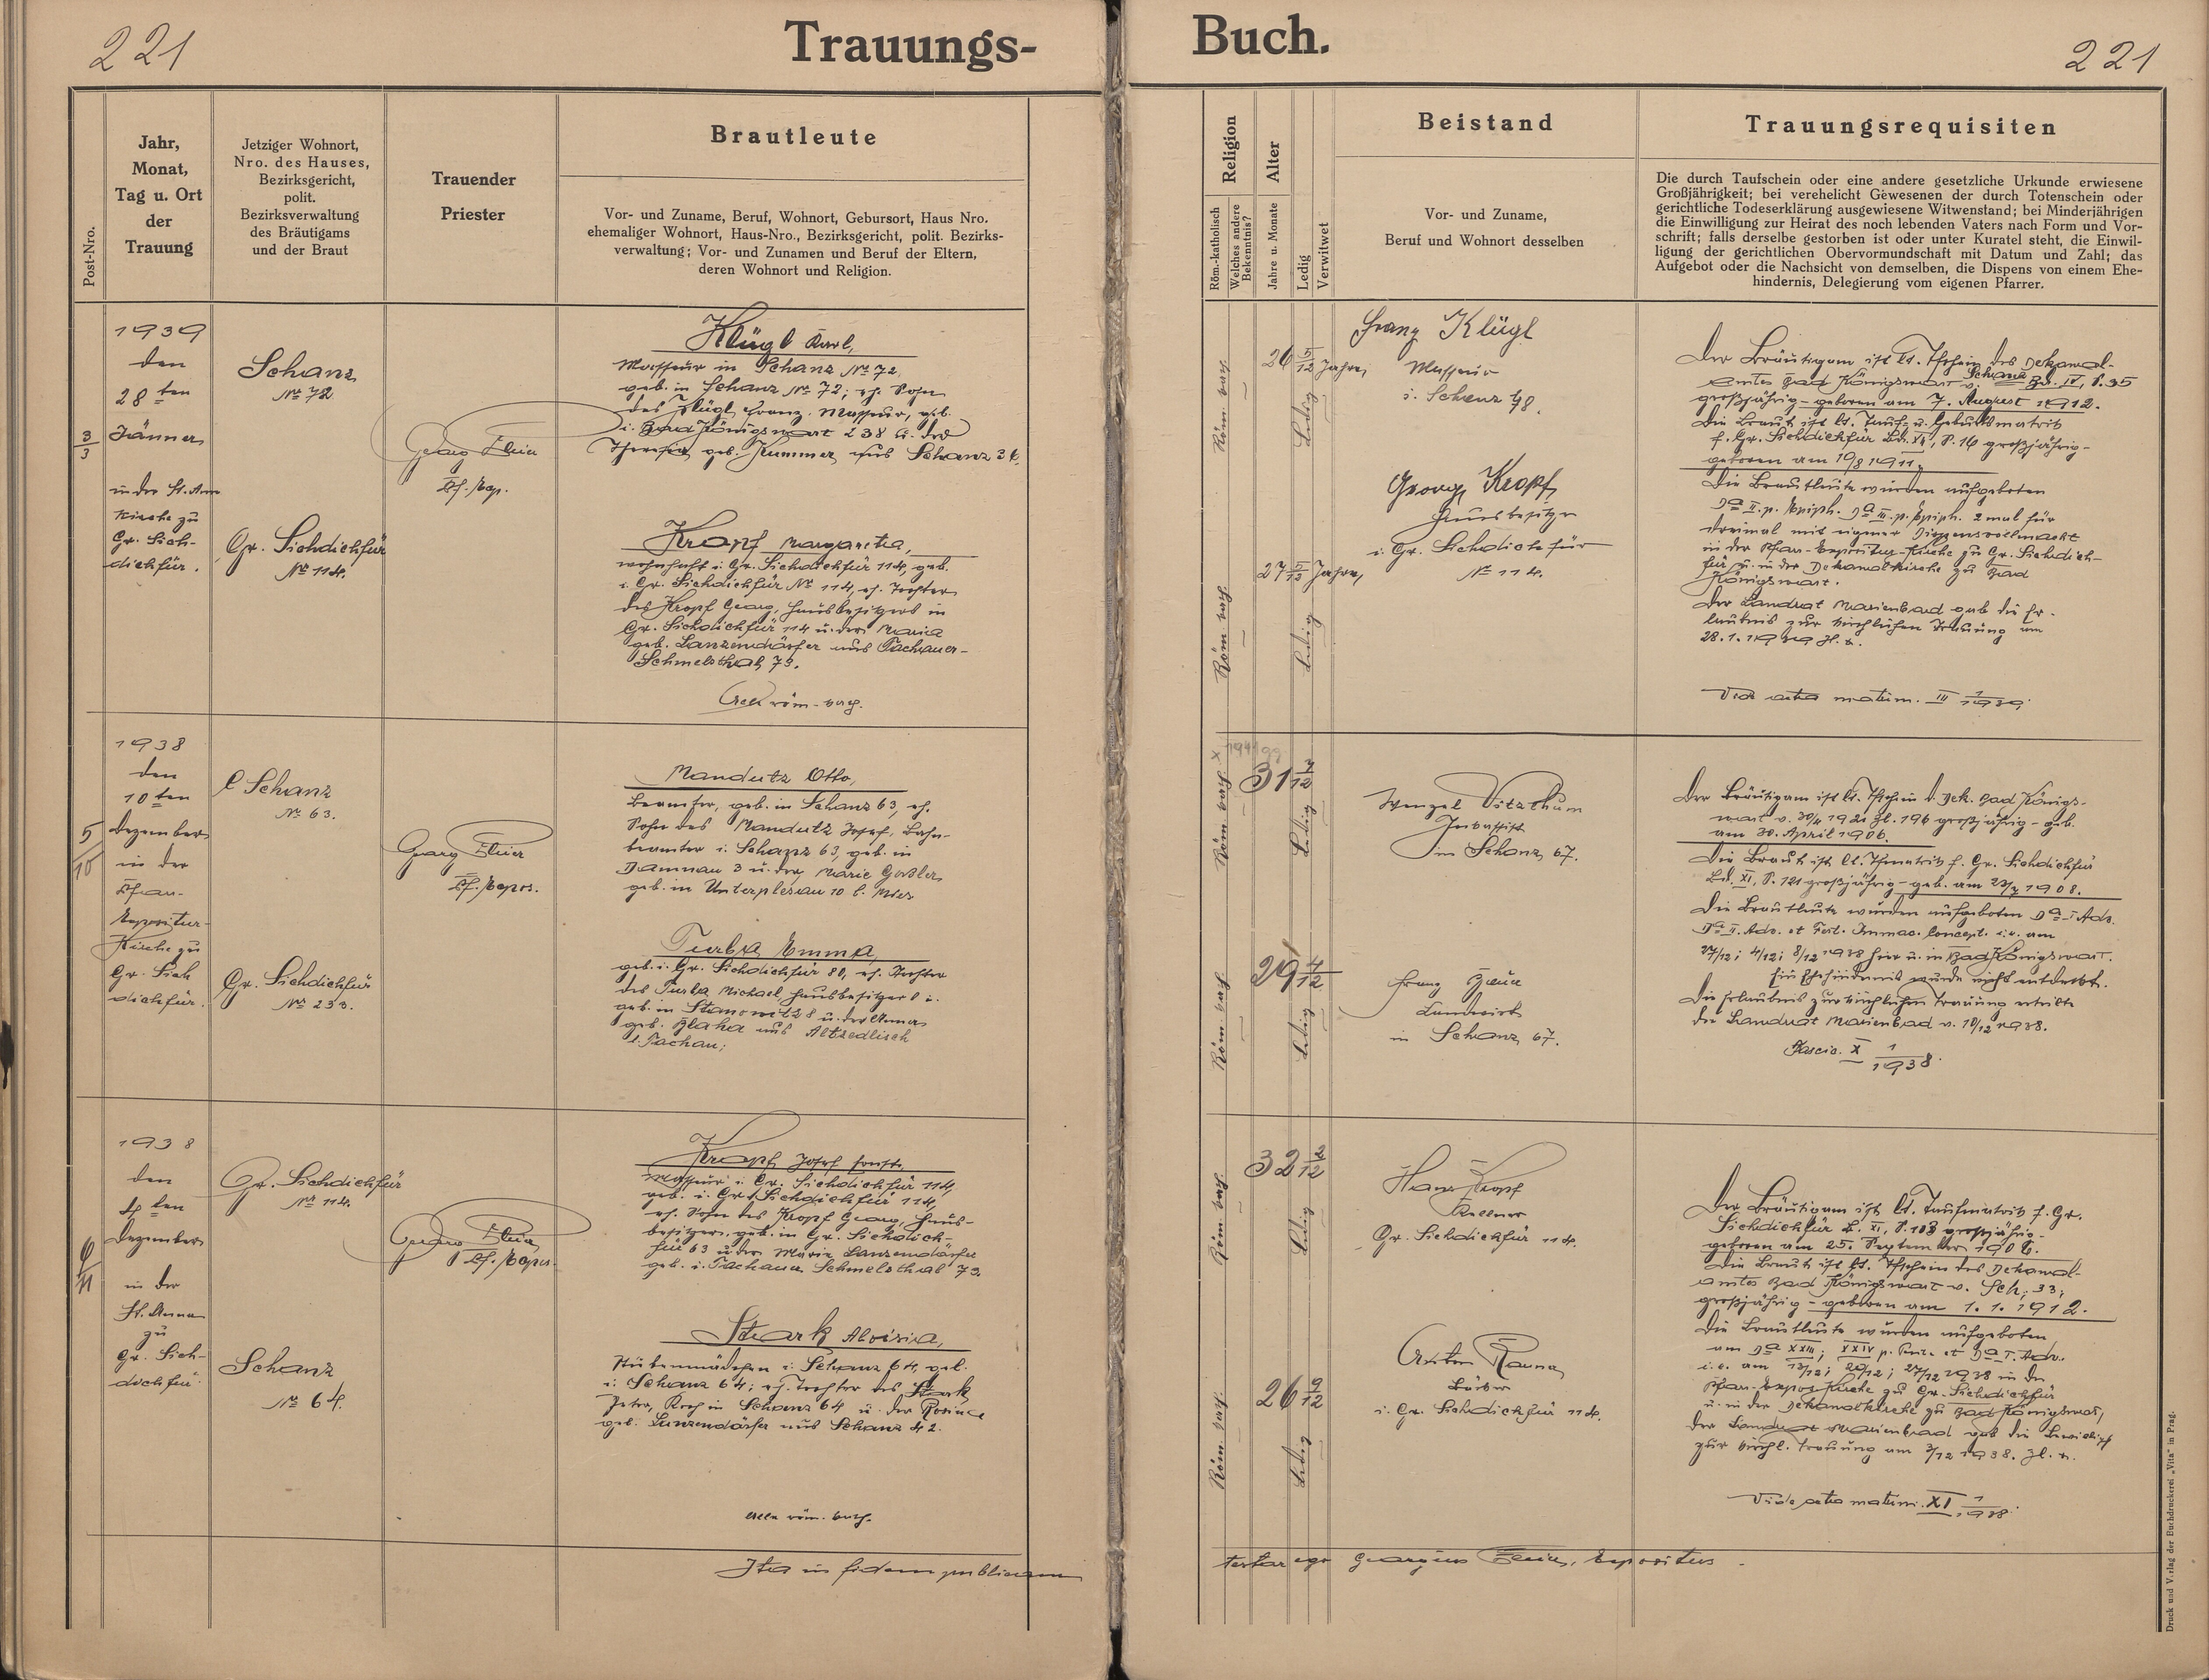 221
Trauungs-
Buch.
221
Post-Nro.
Jahr,
Monat,
Tag u. Ort
der
Trauung
Jetziger Wohnort,
Nro. des Hauses,
Bezirksgericht,
polit.
Bezirksverwaltung
des Bräutigams
und der Braut
Trauender
Priester
Brautleute
Vor- und Zuname, Beruf, Wohnort, Gebursort, Haus Nro.
ehemaliger Wohnort, Haus-Nro., Bezirksgericht, polit. Bezirks-
verwaltung; Vor- und Zunamen und Beruf der Eltern,
deren Wohnort und Religion.
Religion
Röm.-katholisch
Welches andere
Bekenntnis?
Alter
Jahre u. Monate
Ledig
Verwitwet
Beistand
Vor- und Zuname,
Beruf und Wohnort desselben
Trauungsrequisiten
Die durch Taufschein oder eine andere gesetzliche Urkunde erwiesene
Großjährigkeit; bei verehelicht Gewesenen der durch Totenschein oder
gerichtliche Todeserklärung ausgewiesene Witwenstand; bei Minderjährigen
die Einwilligung zur Heirat des noch lebenden Vaters nach Form und Vor-
schrift; falls derselbe gestorben ist oder unter Kuratel steht, die Einwil-
ligung der gerichtlichen Obervormundschaft mit Datum und Zahl; das
Aufgebot oder die Nachsicht von demselben, die Dispens von einem Ehe-
hindernis, Delegierung vom eigenen Pfarrer.
3/3
1939
den
28ten
Jänner
in der St. Anna
Kirche zu
Gr. Sich-
dichfür.
Schanz
Nr. 72
Gr. Sichdichfür
Nr. 114.
Georg
Pf. Exp.
Klügl Karl,
Masseur in Schanz Nr. 72
geb. in Schanz Nr. 72; eh. Sohn
des Klügl Franz, Masseur, geb.
i. Bad Königswart 238 u. der
Theresia geb. Kummer aus Schanz
Kropf Margaretha,
wohnhaft i. Gr. Sichdichfür 114, geb.
i. Gr. Sichdichfür Nr. 114, eh. Tochter
des Kropf Georg, Hausbesitzers in
Gr. Sichdichfür 114 u. der Maria
geb. Lanzendörfer aus Tachauer-
Schmelzthal 73.
Alle röm.-kath.
Röm. kath.
26 5/12 Jahre,
Ledig
Röm. kath.
27 5/12 Jahre,
Ledig
Franz Klügl
Masseur
i. Schanz 48.
Georg Kropf
Hausbesitzer
i. Gr. Sichdichfür
Nr. 114.
Der Bräutigam ist lt. Tfschein des Dekanal-
amtes Bad Königswart v. Schanz Bd. IV, S. 35
großjährig – geboren am 7. August 1912.
Die Braut ist lt. Tauf- u. Geburtsmatrik
f. Gr. Sichdichfür Bd. XI, S. 16 großjährig –
geboren am 19/8 1911.
Die Brautleute wurden aufgeboten
Dca II. p. Epiph. Dca III. p. Epiph. 2 mal für
dreimal mit eigener Dispensvollmacht
in der Pfarr-Expositur-Kirche zu Gr. Sichdich-
für u. in der Dekanalkirche zu Bad
Königswart.
Der Landrat Marienbad gab die Er-
laubnis zur kirchlichen Trauung am
28. 1. 1939
Vide acta matrim. III 1/1939.
5/10
1938
den
10ten
Dezember
in der
Pfarr-
Expositur-
Kirche zu
Gr. Sich
dichfür.
Schanz
Nr. 63.
Gr. Sichdichfür
Nr. 233.
Georg
Pf. Expos.
Mandutz Otto,
Beamter, geb. in Schanz 63, eh.
Sohn des Mandutz Josef, Bahn-
beamter i. Schanz 63, geb. in
Damnau 3 u. der Marie
geb. in Unterplesau 10 b. Mies
Turba Emma,
geb. i. Gr. Sichdichfür 80, eh. Tochter
des Turba Michael, Hausbesitzers i.
geb. in Stanowitz 8 u. der Anna
geb. Blaha aus Altzedlisch
b. Tachau;
Röm. kath.
31 7/12
Ledig
Röm. kath.
29 4/12
Ledig
Wenzel Vitzthum
in Schanz 67.
Franz
Landwirt
in Schanz 67.
Der Bräutigam ist lt. Tfschein d. Dek. Bad Königs-
wart v. Zl. 196 großjährig – geb.
am 30. April 1906.
Die Braut ist lt. Tfmatrik f. Gr. Sichdichfür
Bd. XI, S. 121 großjährig – geb. am 1908.
Die Brautleute wurden aufgeboten Dca I. Adv.
Dca II. Adv. et Fest. Immac. Concept. i. e. am
27/12; 4/12; 8/12 1938 hier u. in Bad Königswart.
Ein Ehehindernis wurde nicht entdeckt.
Die Erlaubnis zur kirchlichen Trauung erteilte
der Landrat Marienbad v. 10/12 1938.
Fascic. X 1/1938.
6/11
1938
den
4ten
Dezember
in der
St. Anna
zu
Gr. Sich-
dichfür.
Gr. Sichdichfür
Nr. 114.
Schanz
Nr. 64.
Georg
Pf. Expos.
Kropf Josef
Masseur i. Gr. Sichdichfür 114,
geb. i. Gr. Sichdichfür 114,
eh. Sohn des Kropf Georg, Haus-
besitzers, geb. in Gr. Sichdich-
für 63 u. der Marie Lanzendörfer
geb. i. Tachauer Schmelzthal 73.
Stark Aloisia,
Stubenmädchen i. Schanz 64, geb.
i. Schanz 64; eh. Tochter des Stark
Peter, Koch in Schanz 64 u. der Rosina
geb. Lanzendörfer aus Schanz 42.
Alle röm. kath.
Röm. kath.
32 2/12
Ledig
Röm. kath.
26 9/12
Ledig
Hans Kropf
Kellner
Gr. Sichdichfür 114.
Anton
i. Gr. Sichdichfür 114.
Der Bräutigam ist lt. Taufmatrik f. Gr.
Sichdichfür B. XI, S. 108 großjährig –
geboren am 25. September 1906.
Die Braut ist lt. Tfschein des Dekanal-
amtes Bad Königswart v. Sch; 33;
großjährig – geboren am 1. 1. 1912.
Die Brautleute wurden aufgeboten
am Dca XXIII; XXIV p. Pent. et Dca I. Adv.
i. e. am 13/12; 20/12; 27/12 1938 in der
Pfarr-Expos. Kirche zu Gr. Sichdichfür
u. in der Dekanalkirche zu Bad Königswart,
der Landrat Marienbad gab die
zur kirchl. Trauung am 3/12 1938.
Vide acta matrim. XI 1/1938.
Ita in fidem publicam
testor ego Georgius Expositus.
Druck und Verlag der Buchdruckerei „Vita" in Prag.